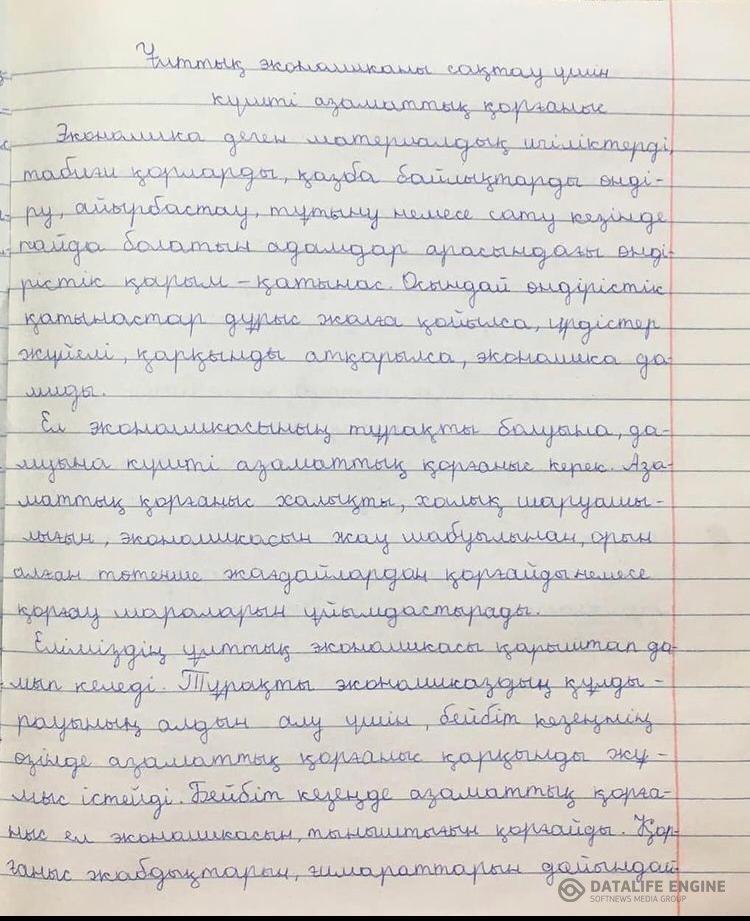 Ұлттық экономиканы сақтау үшін
күшті азаматтық қорғаныс
Экономика деген материалдық игіліктерді,
табиғи қорларды, қазба байлықтарды өнді-
ру, айырбастау, тұтыну немесе сату кезінде
пайда болатын адамдар арасындағы өнді-
рістік қарым-қатынас. Осындай өндірістік
қатынастар дұрыс жолға қойылса, үрдістер
жүйелі, қарқынды атқарылса, экономика да-
миды.
Ел экономикасының тұрақты болуына, да-
муына күшті азаматтық қорғаныс керек. Аза-
маттық қорғаныс халықты, халық шаруашы-
лығын, экономикасын жау шабуылынан, орын
алған төтенше жағдайлардан қорғайды немесе
қорғау шараларын ұйымдастырады.
Еліміздің ұлттық экономикасы қарыштап да-
мып келеді. Тұрақты экономиказдың құлды-
рауының алдын алу үшін, бейбіт кезеңмің
өзінде азаматтық қорғаныс қарқынды жұ-
мыс істейді. Бейбіт кезеңде азаматтық қорға-
ныс ел экономикасын, тыныштығын қорғайды. Қор-
ғаныс жабдықтарын, ғимараттарын дайындай-
DATALIFE ENGINE
SOFTNEWS MEDIA GROUP